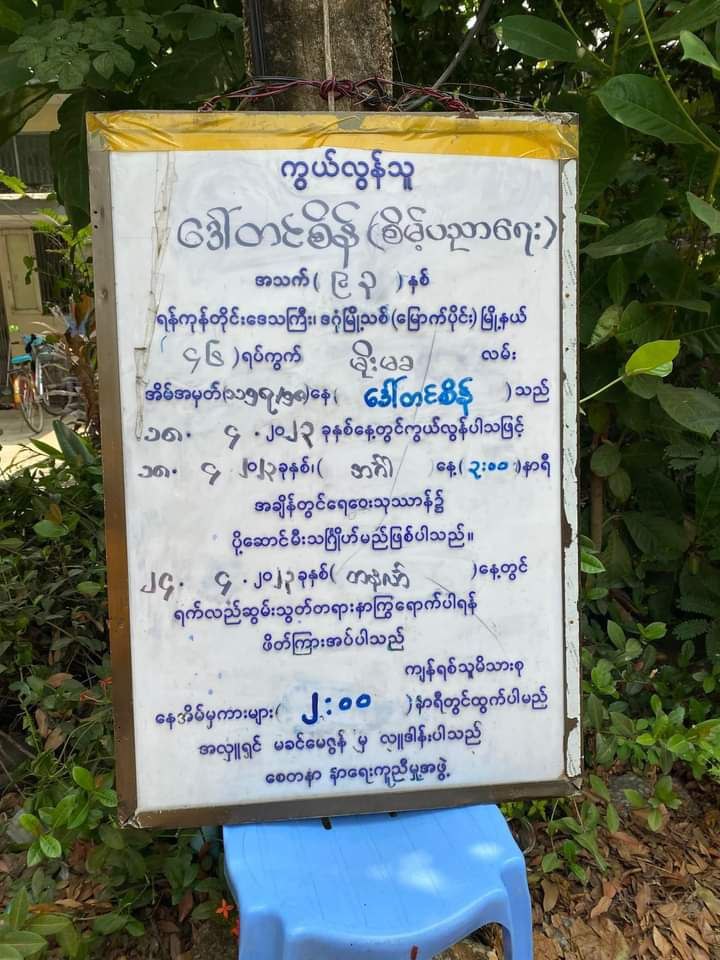 ကွယ်လွန်သူ
ဒေါ်တင်စိန် (စိမ့်ပညာရေး)
အသက် ( ၉၃ ) နှစ်
ရန်ကုန်တိုင်းဒေသကြီး၊ ဒဂုံမြို့သစ် (မြောက်ပိုင်း) မြို့နယ်
( ၄၆ ) ရပ်ကွက် မိုးမခ လမ်း
အိမ်အမှတ် နေ ( ဒေါ်တင်စိန် ) သည်
၁၈. ၄ . ၂၀၂၃ ခုနှစ်နေ့တွင်ကွယ်လွန်ပါသဖြင့်
၁၈. ၄ ၂၀၂၃ ခုနှစ်၊ ( အင်္ဂါ ) နေ့ ( ၃:၀၀ ) နာရီ
အချိန်တွင်ရေဝေးသုဿာန်၌
ပို့ဆောင်မီးသင်္ဂြိုဟ်မည်ဖြစ်ပါသည်။
၂၄. ၄ . ၂၀၂၃ ခုနှစ် ( တနင်္လာ ) နေ့တွင်
ရက်လည်ဆွမ်းသွတ်တရားနာကြွရောက်ပါရန်
ဖိတ်ကြားအပ်ပါသည်
ကျန်ရစ်သူမိသားစု
နေအိမ်မှကားများ ( ၂:၀၀ ) နာရီတွင်ထွက်ပါမည်
အလှူရှင် မခင်မေဇွန် မှ လှူဒါန်းပါသည်
စေတနာ နာရေးကူညီမှုအဖွဲ့